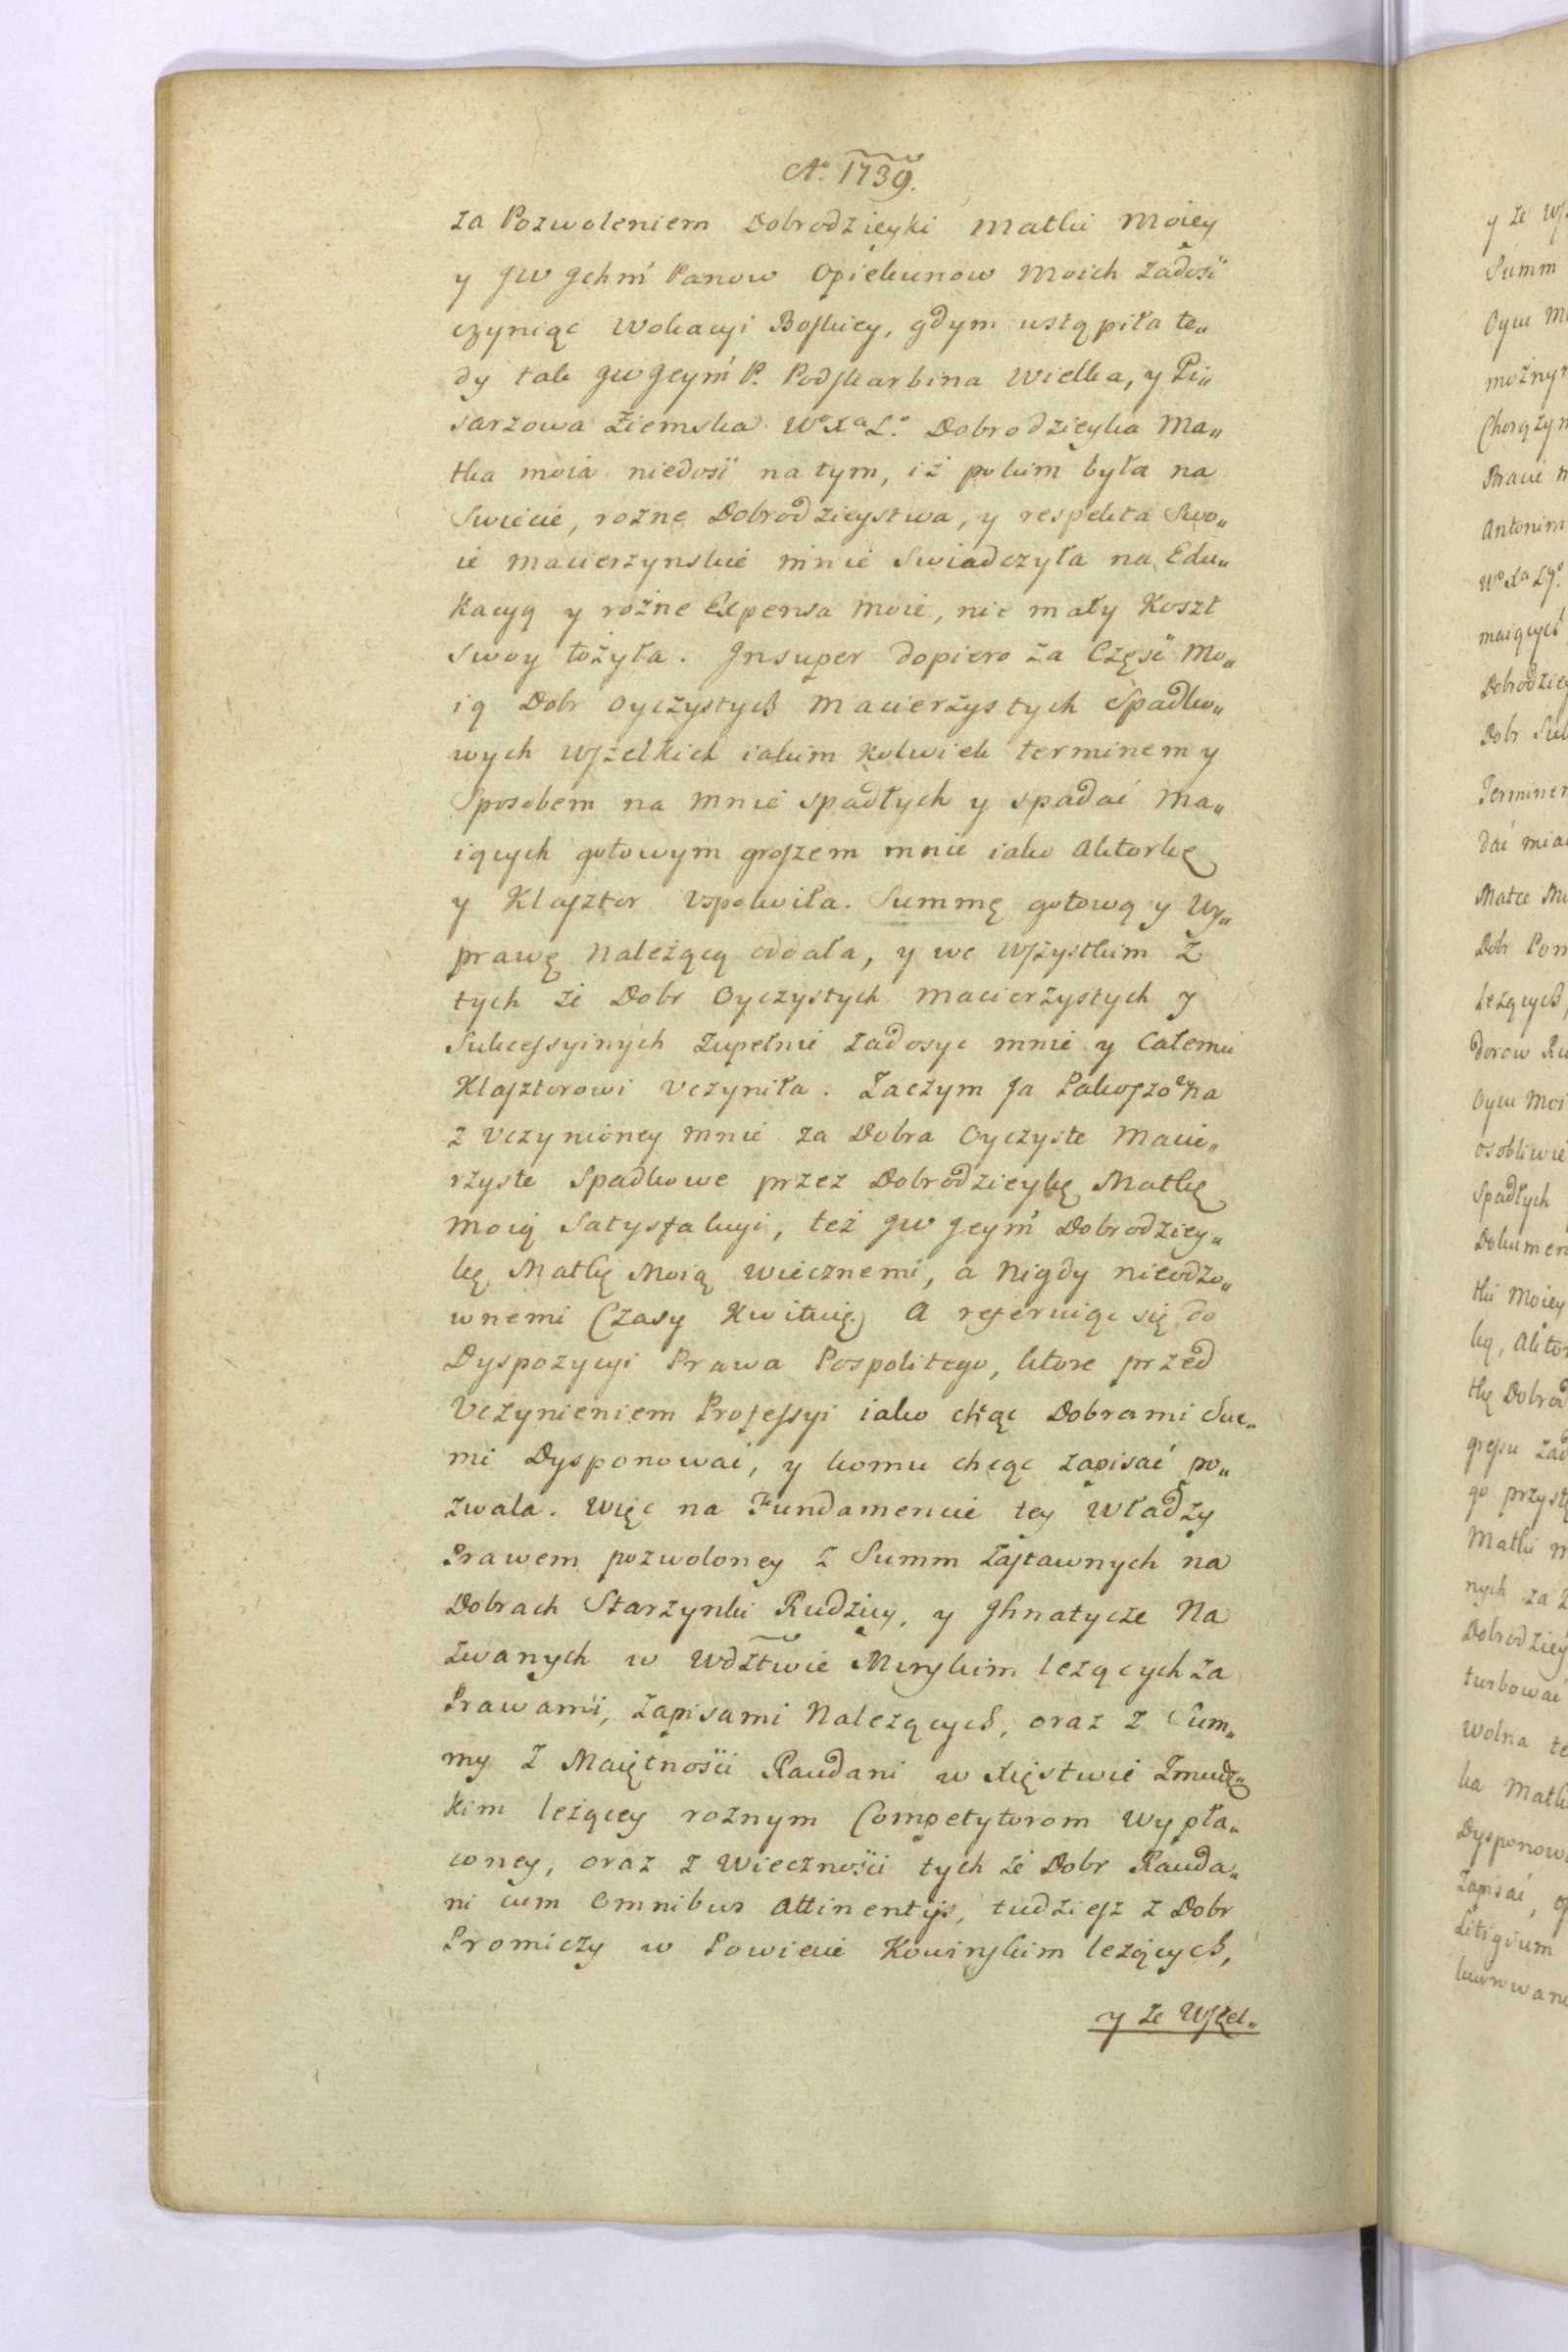 Aº 1739.
za Pozwoleniem Dobrodzieyki Matki Moiey
y JW Jchm̃ Panow Opiekunow Moich zadosć
czyniąc Wokacyi Boskiey, gdym ustąpiła te„
dy tak JW Jeym̃ P. Podskarbina Wielka, y Pi„
sarzowa Ziemska Wº Xª Lº. Dobrodzieyka Ma„
tka moia niedosć na tym, iż pokim była na
Swiecie, rożne Dobrodzieystwa, y respekta Swo„
ie macierzynskie mnie Swiadczyła na Edu„
Kacyą y rożne Expensa moie, nie mały Koszt
Swoy łożyła. Jnsuper dopiero za Częsć Mo„
ią Dobr Oyczystych Macierzystych Spadko„
wych wszelkich iakim Kolwiek terminem y
Sposobem na mnie spadłych y spadać Ma„
iących gotowym groszem mnie iako Aktorkę
y Klasztor Uspokoiła. Summę gotową y Wy„
prawę Należącą oddała, y we wszystkim z
tych że Dobr Oyczystych Macierzystych y
Sukcessyinych zupełnie zadosyc mnie y całemu
Klasztorowi Uczyniła. Zaczym Ja Pakoszowna
z Uczynioney mnie za Dobra Oyczyste Macie„
rzyste Spadkowe przez Dobrodzieykę Matkę
Moią Satysfakcyi, też JW Jeym̃ Dobrodziey„
kę Matkę Moią wiecznemi, a Nigdy nieodzo„
wnemi Czasy Kwituię. A referuiąc się do
Dyspozycyi Prawa Pospolitego, ktore przed
Uczynieniem Professyi iako chcąc Dobrami Swe„
mi Dysponować, y komu chcąc zapisać po„
zwala. Więc na Fundamencie tey Władzy
Prawem pozwoloney z Summ zastawnych na
Dobrach Starzynki Rudzicy, y Jhnatycze Na
zwanych w Wdztwie Minskim leżących za
Prawami, zapisami Należących, oraz z Sum„
my z Maiętnosci Raudani w Xięstwie Zmudz„
kim leżącey rożnym Competytorom Wypła„
coney, oraz z Wiecznosci tych że Dobr Rauda„
ni cum Omnibus Attinentijs, tudziesz z Dobr
Promiczy w Powiecie Kowinskim leżących,
y ze Wszel„